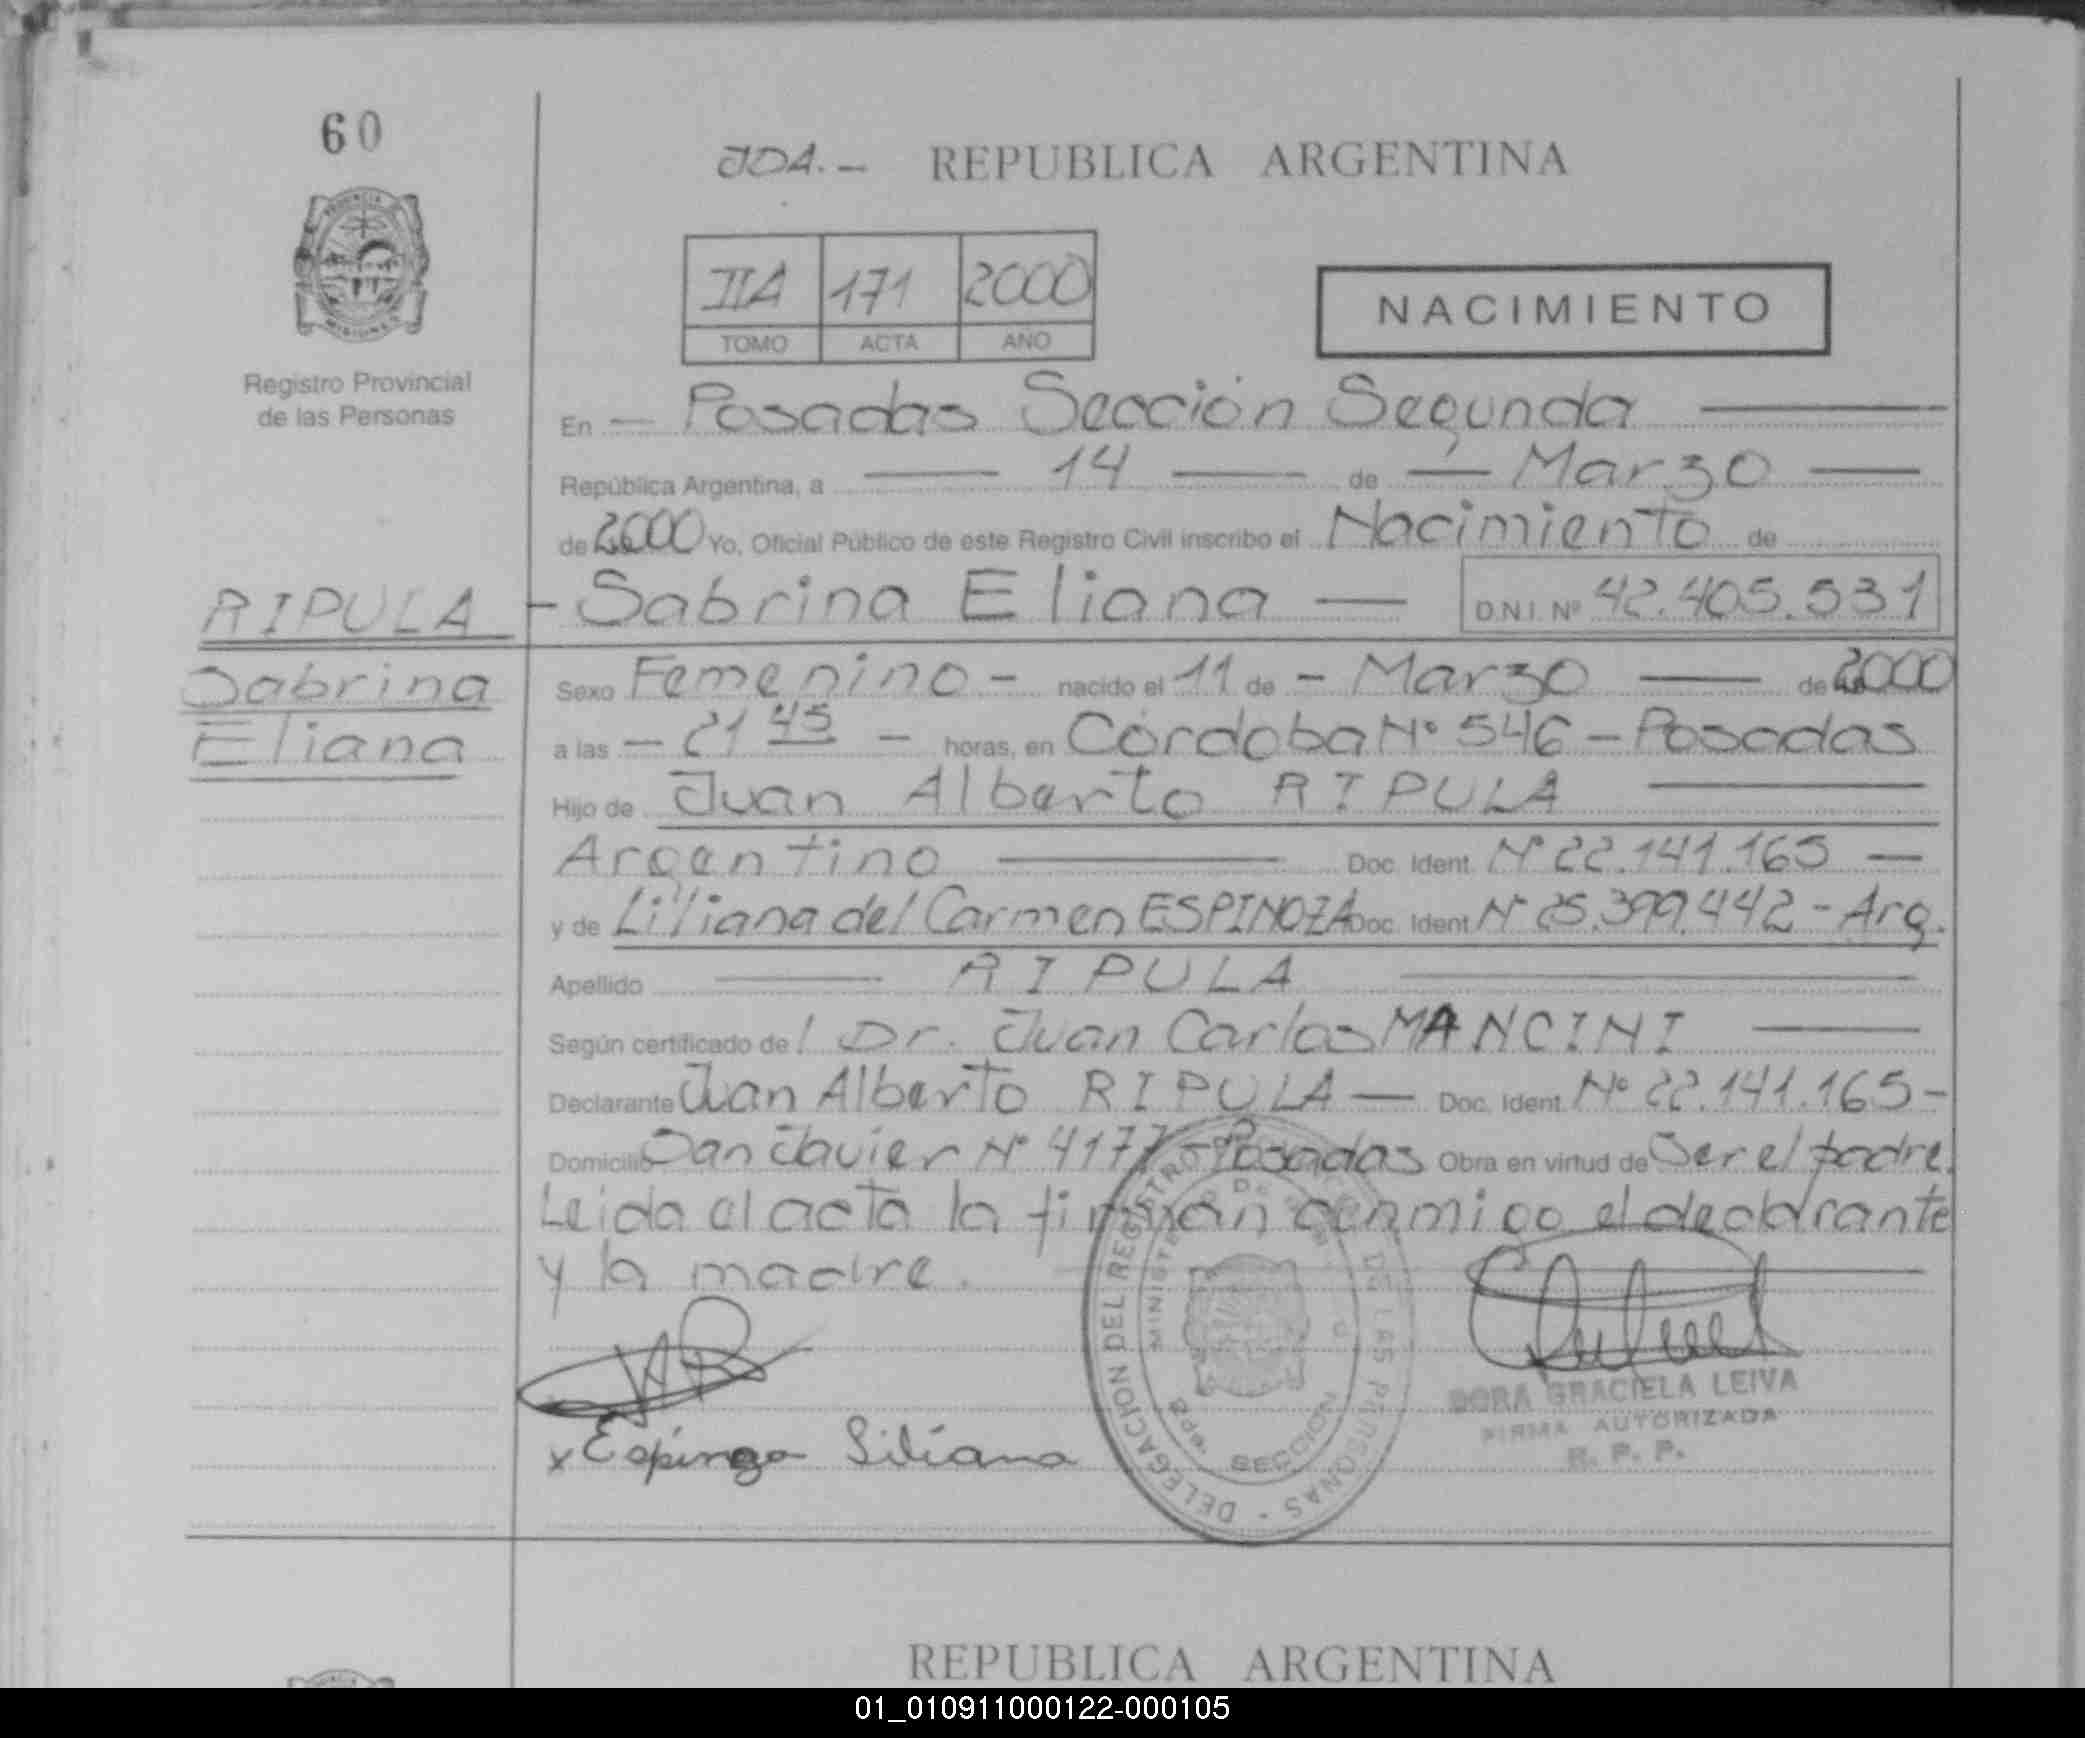 60
JDA.- REPUBLICA ARGENTINA
IIA 171 2000
TOMO ACTA AÑO
NACIMIENTO
Registro Provincial
de las Personas
En — Posadas Sección Segunda —
República Argentina, a — 14 — de — Marzo —
de 2000 Yo, Oficial Público de este Registro Civil inscribo el Nacimiento de
RIPULA - Sabrina Eliana — D.N.I. Nº 42.405.531
Sabrina
Eliana
Sexo Femenino - nacido el 11 de - Marzo — de 2000
a las — 21 45 — horas, en Córdoba Nº 546 - Posadas
Hijo de Juan Alberto RIPULA —
Argentino — Doc. Ident. Nº 22.141.165 —
y de Liliana del Carmen ESPINOZA Doc. Ident. Nº 25.399.442 - Arg.
Apellido — RIPULA —
Según certificado del Dr. Juan Carlos MANCINI —
Declarante Juan Alberto RIPULA — Doc. Ident. Nº 22.141.165 -
Domicilio San Javier Nº 4177 - Posadas Obra en virtud de Ser el padre.
Leida el acta la firman conmigo el declarante
y la madre.
x Espinoza Liliana
DELEGACION DEL REGISTRO DE LAS PERSONAS
MINISTERIO DE
2da. SECCION
DORA GRACIELA LEIVA
FIRMA AUTORIZADA
R. P. P.
REPUBLICA ARGENTINA
01_010911000122-000105